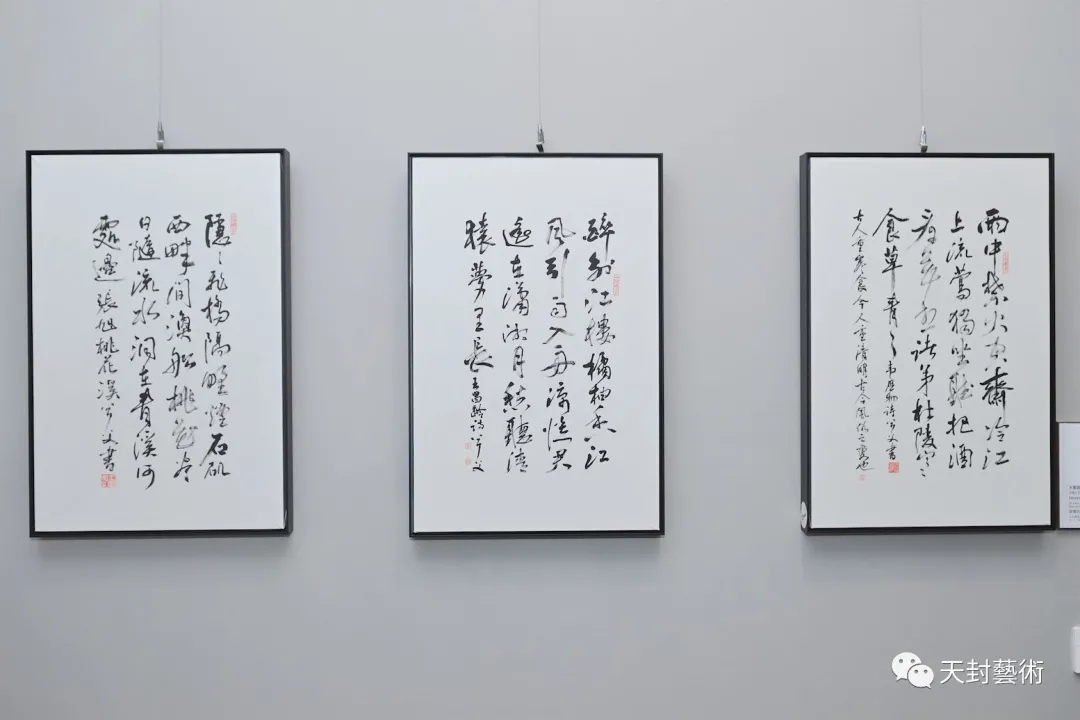 雨中禁火空齋冷江
上流鶯獨坐聽把酒
看花想諸弟杜陵寒
食草青〻韋應物詩父書
古人重寒食今人重清明古今風俗之異也
醉別江樓橘柚香江
風引雨入舟涼憶君
遙在瀟湘月愁聽清
猿夢里長王昌齡詩父
隱〻飛橋隔野煙石磯
西畔問漁船桃花盡
日隨流水洞在青溪何
處邊張旭桃花溪父書
天封藝術